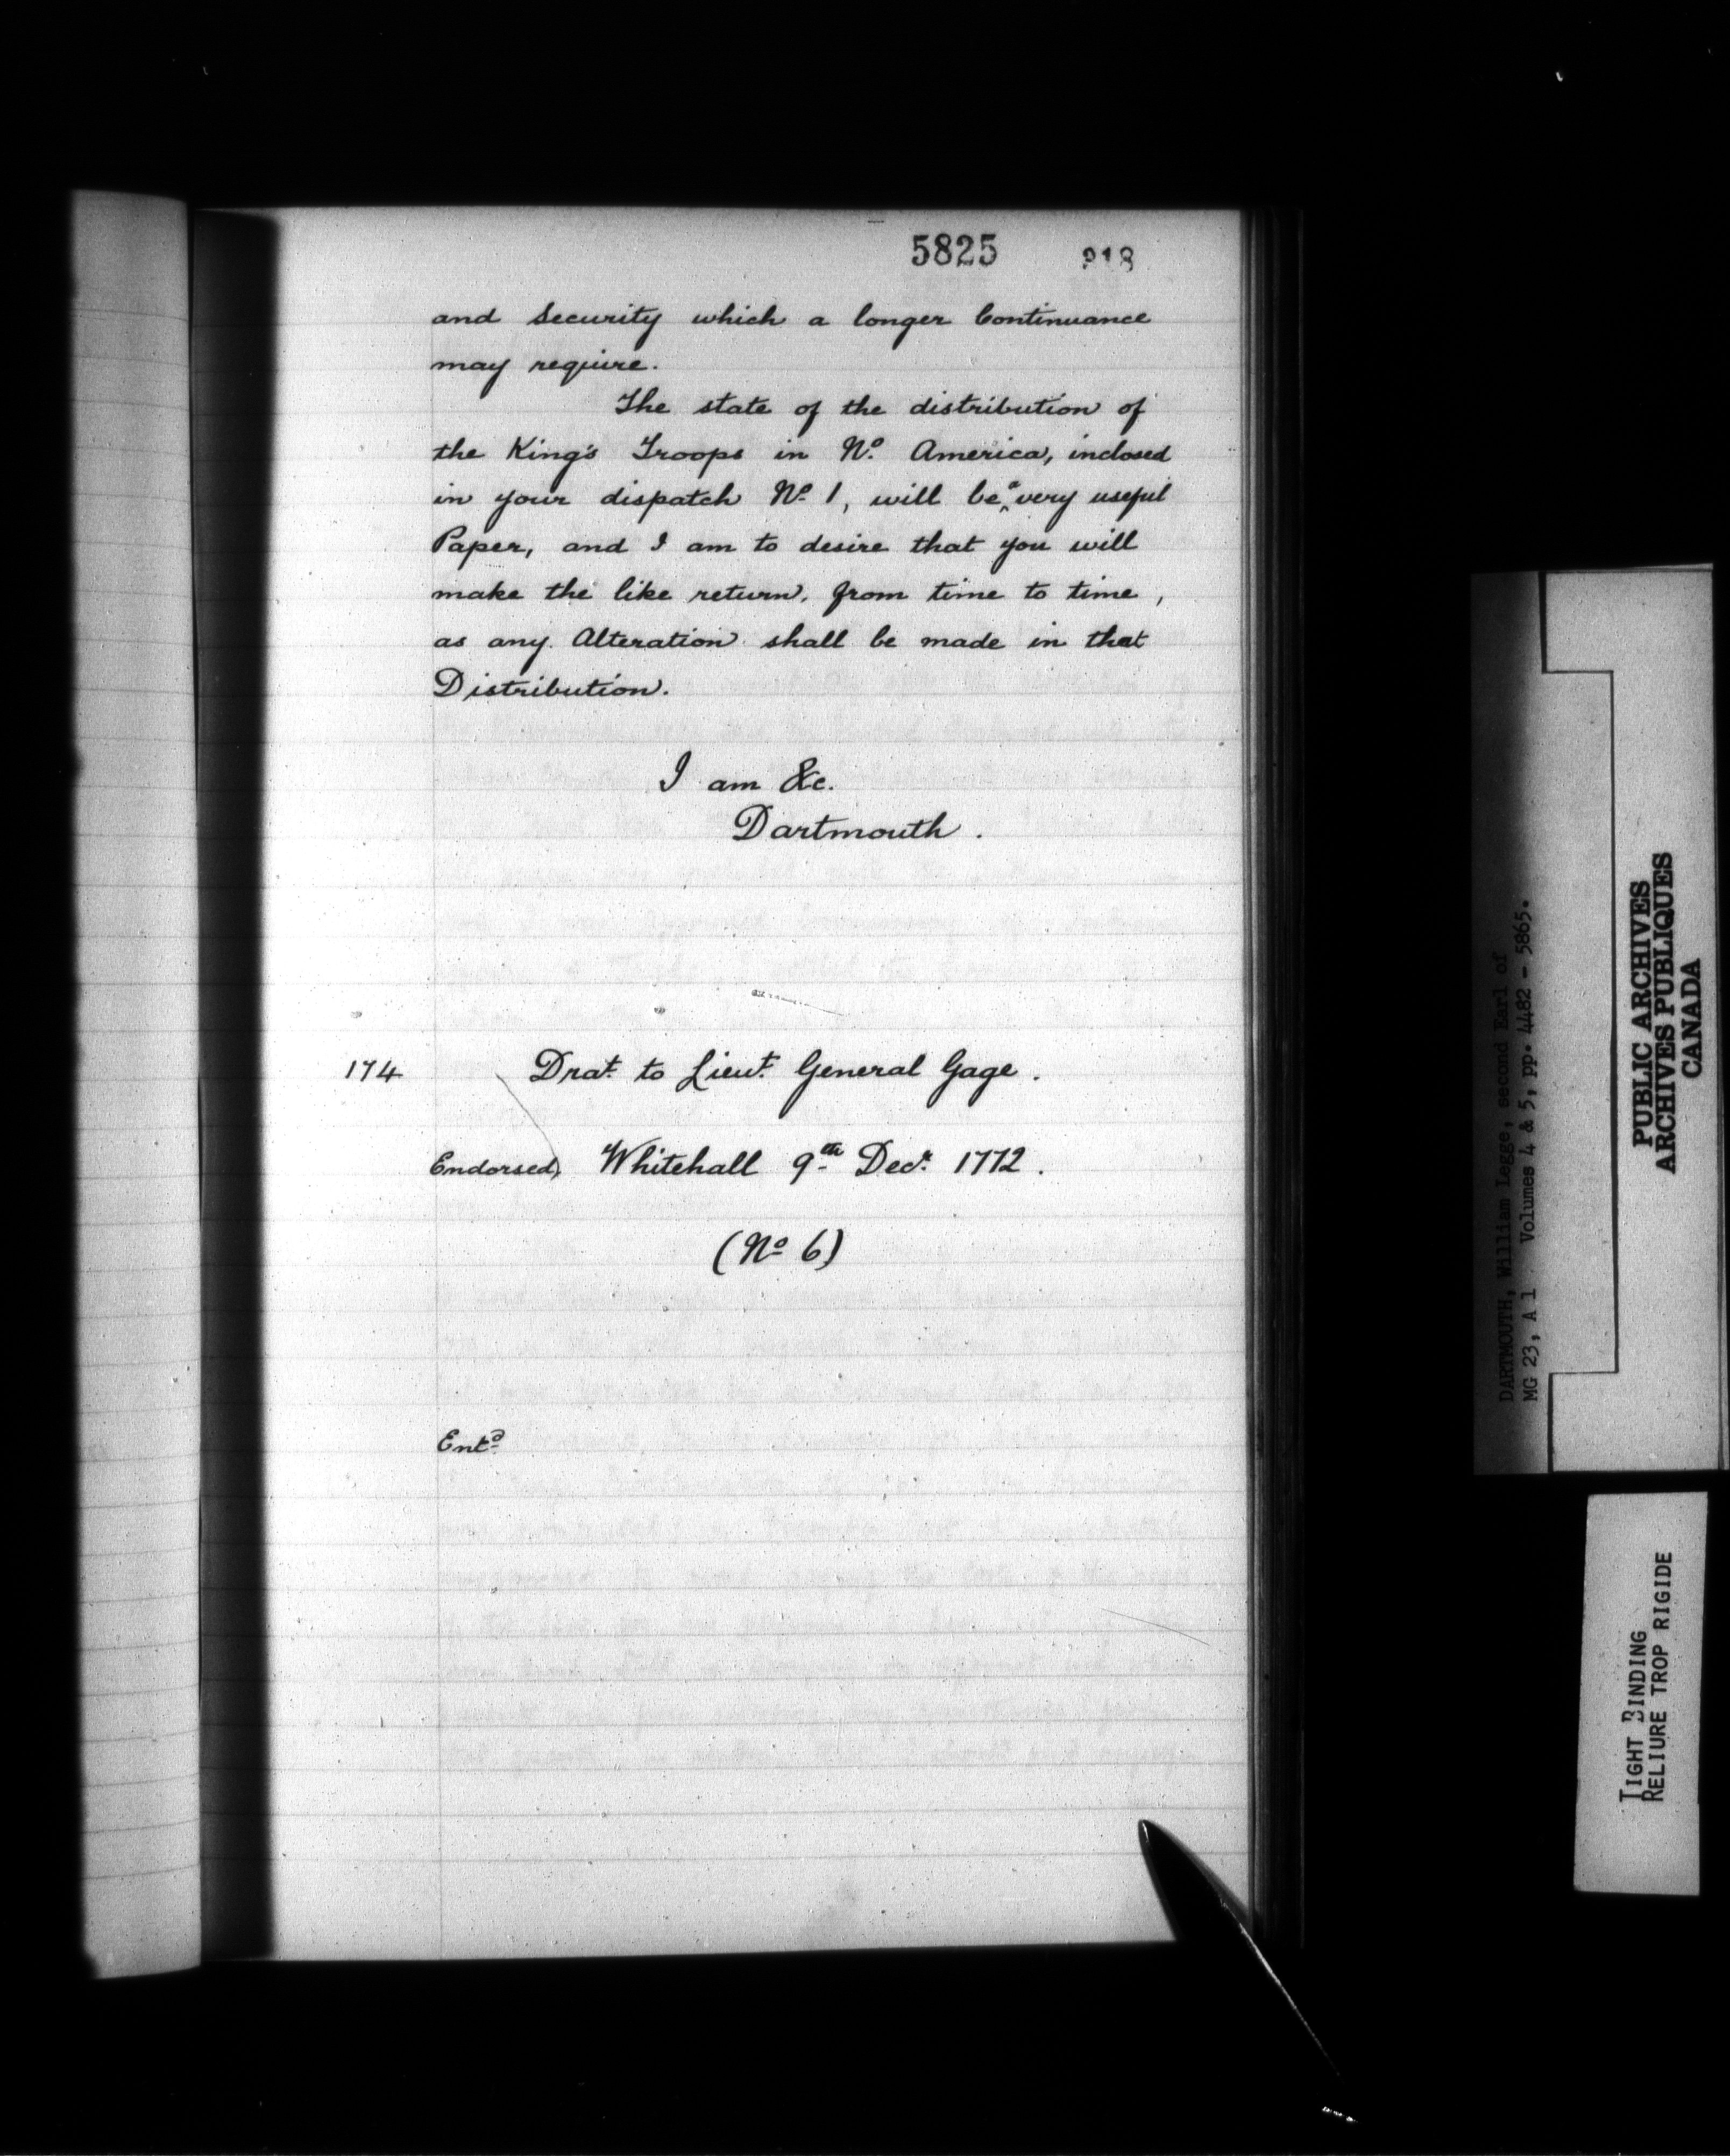 5825 218
and Security which a longer Continuance
may require.
The state of the distribution of
the King's Troops in Nº. America, inclosed
in your dispatch Nº 1, will be ^a very useful
Paper, and I am to desire that you will
make the like return, from time to time,
as any Alteration shall be made in that
Distribution.
I am &c.
Dartmouth.
174 Drat. to Lieut. General Gage.
Endorsed, Whitehall 9th Decr. 1772.
(Nº 6)
Entd
DARTMOUTH, William Legge, second Earl of
MG 23, A 1 Volumes 4 & 5, pp. 4482 - 5865.
PUBLIC ARCHIVES
ARCHIVES PUBLIQUES
CANADA
TIGHT BINDING
RELIURE TROP RIGIDE